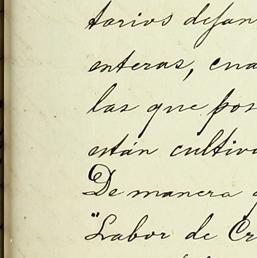 torios dejan
enteras, cua
las que pos
están cultiva
De manera q
"Labor de Cr